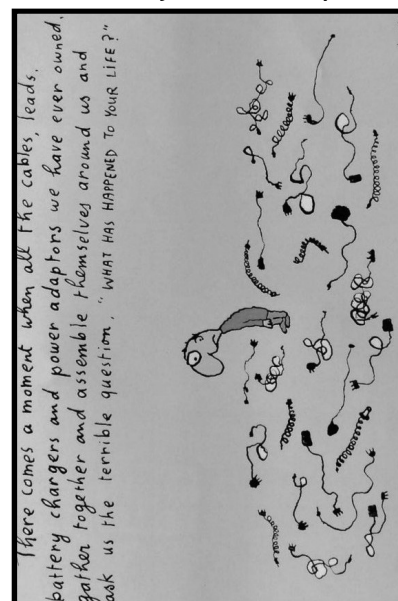 There comes a moment when all the cables, leads,
battery chargers and power adaptors we have ever owned,
gather together and assemble themselves around us and
ask us the terrible question, "WHAT HAS HAPPENED TO YOUR LIFE?"